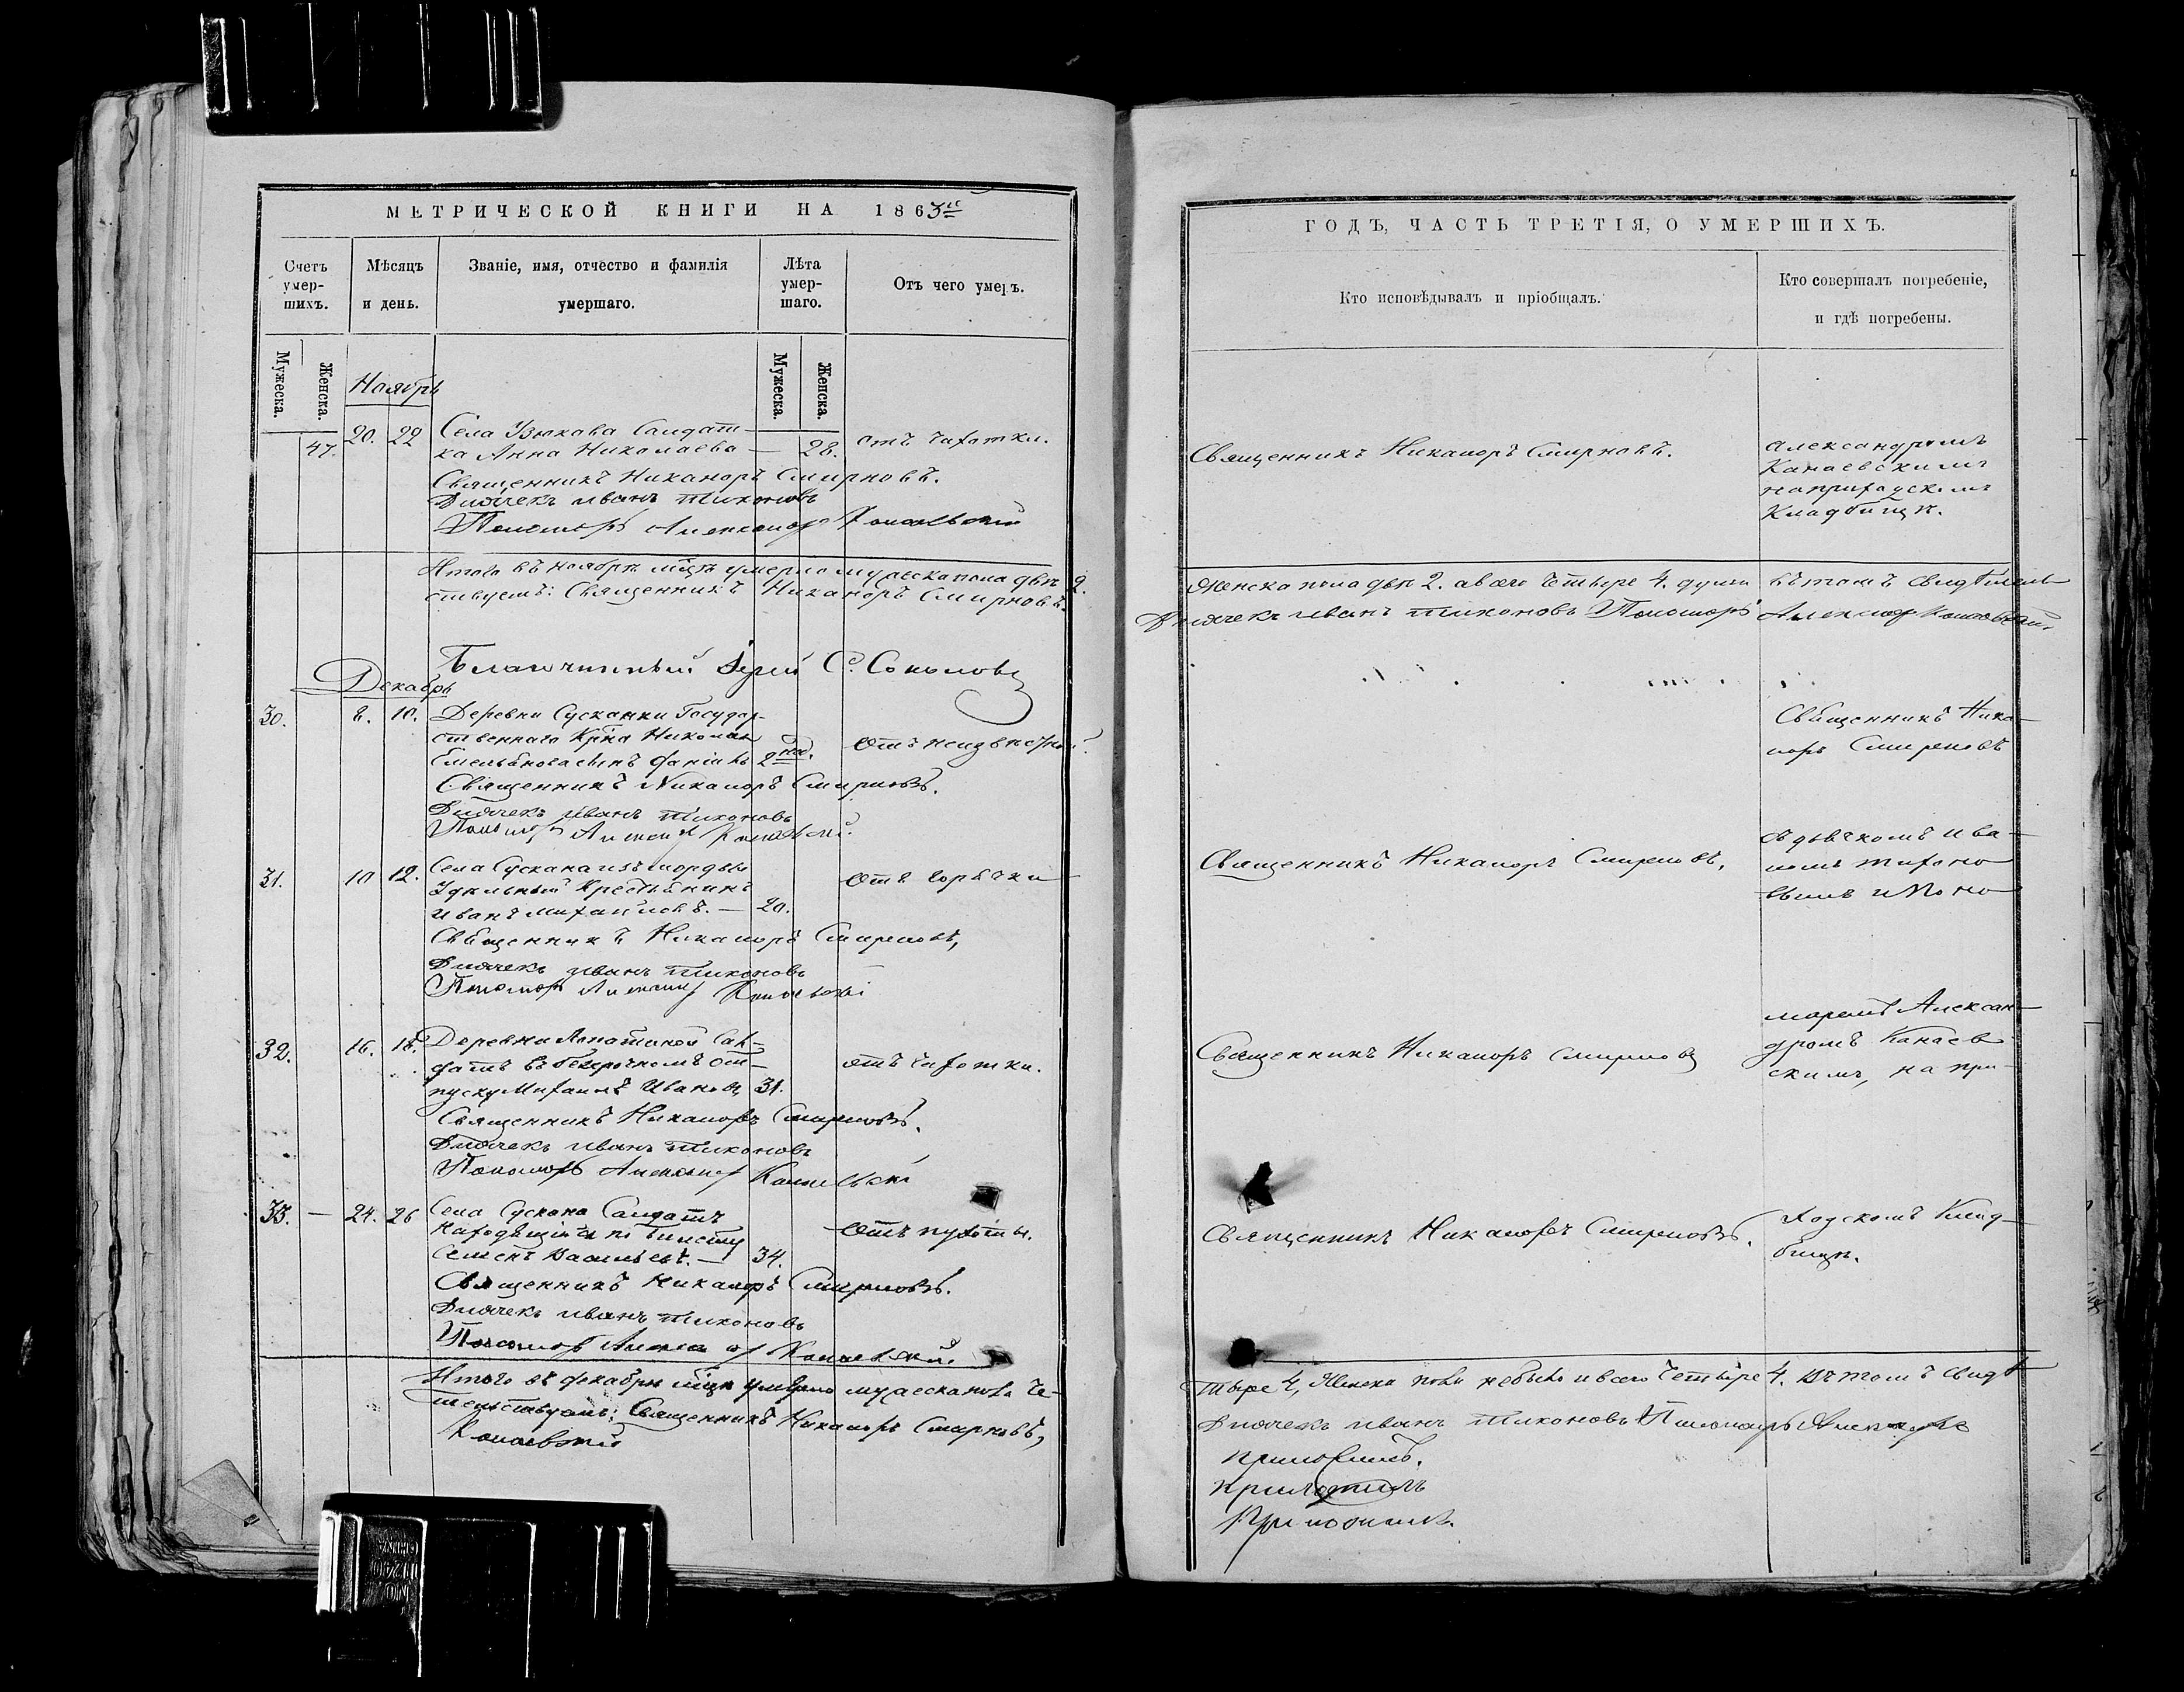 МЕТРИЧЕСКОЙ КНИГИ НА 1863й
Счетъ умершихъ.
Мѣсяцъ и день.
Званіе, имя, отчество и фамилія умершаго.
Лѣта умершаго.
Отъ чего умеръ.
Мужеска.
Женска.
Мужеска.
Женска.
Ноябрь
47. 20. 22 Села Узюкова Салдат-
ка Анна Николаева — 28. отъ чахотки.
Священникъ Никаноръ Смирновъ.
Дьячекъ Иванъ Тихоновъ
Пономарь Александръ Канаевскій
Итого въ ноябрѣ мцѣ умерло мужеска пола два 2.
ствуемъ: Священникъ Никаноръ Смирновъ.
Благочинный Іерей С. Соколовъ
Декабрь
30. 8. 10. Деревни Сусканки Государ-
ственнаго Крна Николая
Емельянова сынъ 2 нед. Отъ
Священникъ Никаноръ Смирновъ.
Дьячекъ Иванъ Тихоновъ
Пономарь Александръ Канаевскій.
31. 10 12. Села Сускана изъ мордвы
Удѣльный Крестьянинъ
Иванъ Михайловъ. — 20. Отъ горячки
Священникъ Никаноръ Смирновъ,
Дьячекъ Иванъ Тихоновъ
Пономарь Александръ Канаевскій
32. 16. 18. Деревни Лопатиной Сал-
датъ въ безсрочномъ от-
пуску Михаилъ Ивановъ 31. отъ чахотки.
Священникъ Никаноръ Смирновъ.
Дьячекъ Иванъ Тихоновъ
Пономарь Александръ Канаевскій
33. — 24. 26 Села Сускана Салдатъ
Находящійся по билету
Семенъ Васильевъ. — 34. Отъ пухоты.
Священникъ Никаноръ Смирновъ.
Дьячекъ Иванъ Тихоновъ
Пономарь Александръ Канаевскій.
Итого въ декабрѣ мцѣ умерло мужеска пола че-
тельствуемъ: Священникъ Никаноръ Смирновъ,
Канаевскій
ГОДЪ, ЧАСТЬ ТРЕТІЯ, О УМЕРШИХЪ.
Кто исповѣдывалъ и пріобщалъ.
Кто совершалъ погребеніе, и гдѣ погребены.
Священникъ Никаноръ Смирновъ.
Александромъ
Канаевскимъ
на приходскомъ
Кладбищѣ.
Женска пола двѣ 2. а всего четыре 4. души въ томъ свидѣтель-
Дьячекъ Иванъ Тихоновъ Пономарь Александръ Канаевскій.
Священникъ Ника-
норъ Смирновъ
Священникъ Никаноръ Смирновъ,
съ дьячкомъ Ива-
номъ Тихоно-
вымъ и Поно-
Священникъ Никаноръ Смирновъ
маремъ Алексан-
дромъ Канаев-
скимъ, на при-
Священникъ Никаноръ Смирновъ.
ходскомъ Клад-
бищѣ.
тыре 4, Женска пола небыло и всего четыре 4. въ томъ свидѣ-
Дьячекъ Иванъ Тихоновъ Пономарь Александръ